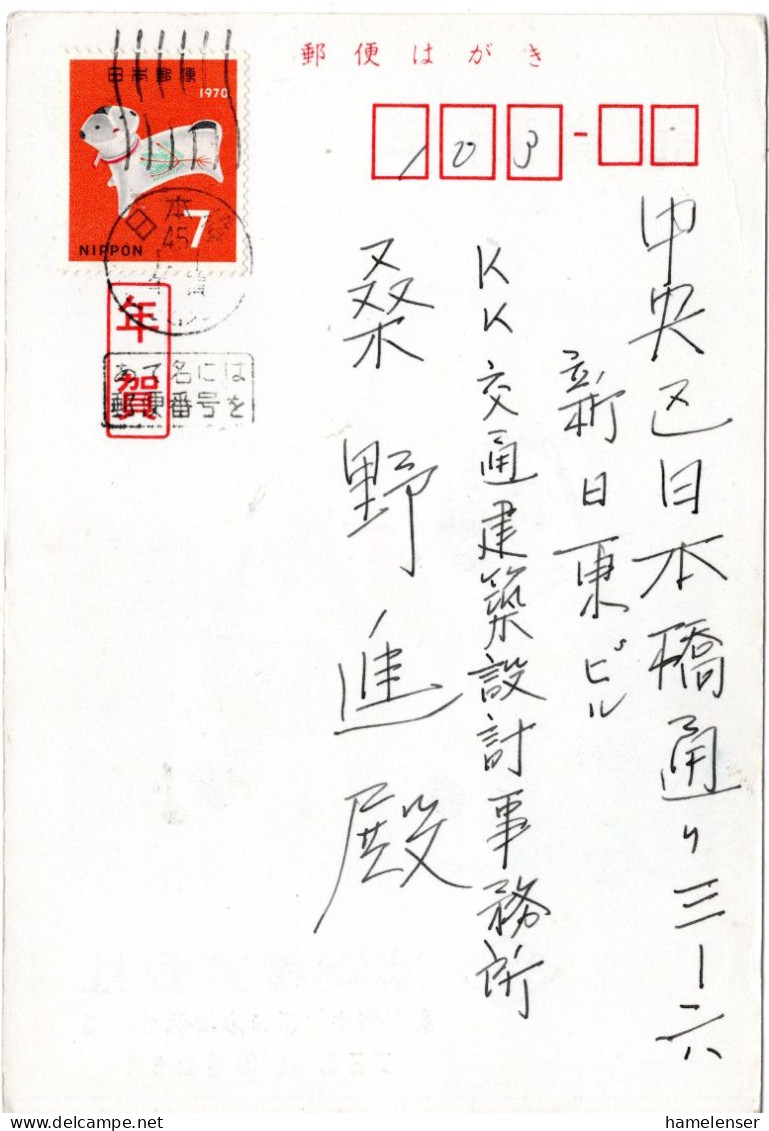 郵便はがき
日本郵便
1970
7
NIPPON
日本
45
年賀
あて名には
郵便番号を
103
中央区日本橋通り三ー六
新日東ビル
KK交通建築設計事務所
桑野進殿
hamelenser